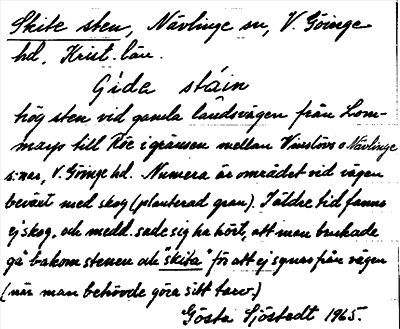 Skite sten, Nävlinge sn, V. Göinge
hd, Krist. län.
Gide stáin
hög sten vid gamla landsvägen från Lom-
marp till Röe i gränsen mellan Vinslövs o Nävlinge
s:nar, V. Göinge hd. Numera är området vid vägen
bevuxt med skog (planterad gran). I äldre tid fanns
ej skog, och medd. sade sig ha hört, att man brukade
gå bakom stenen och "skita" för att ej synas från vägen
(när man behövde göra sitt tarv.)
Gösta Sjöstedt 1965.